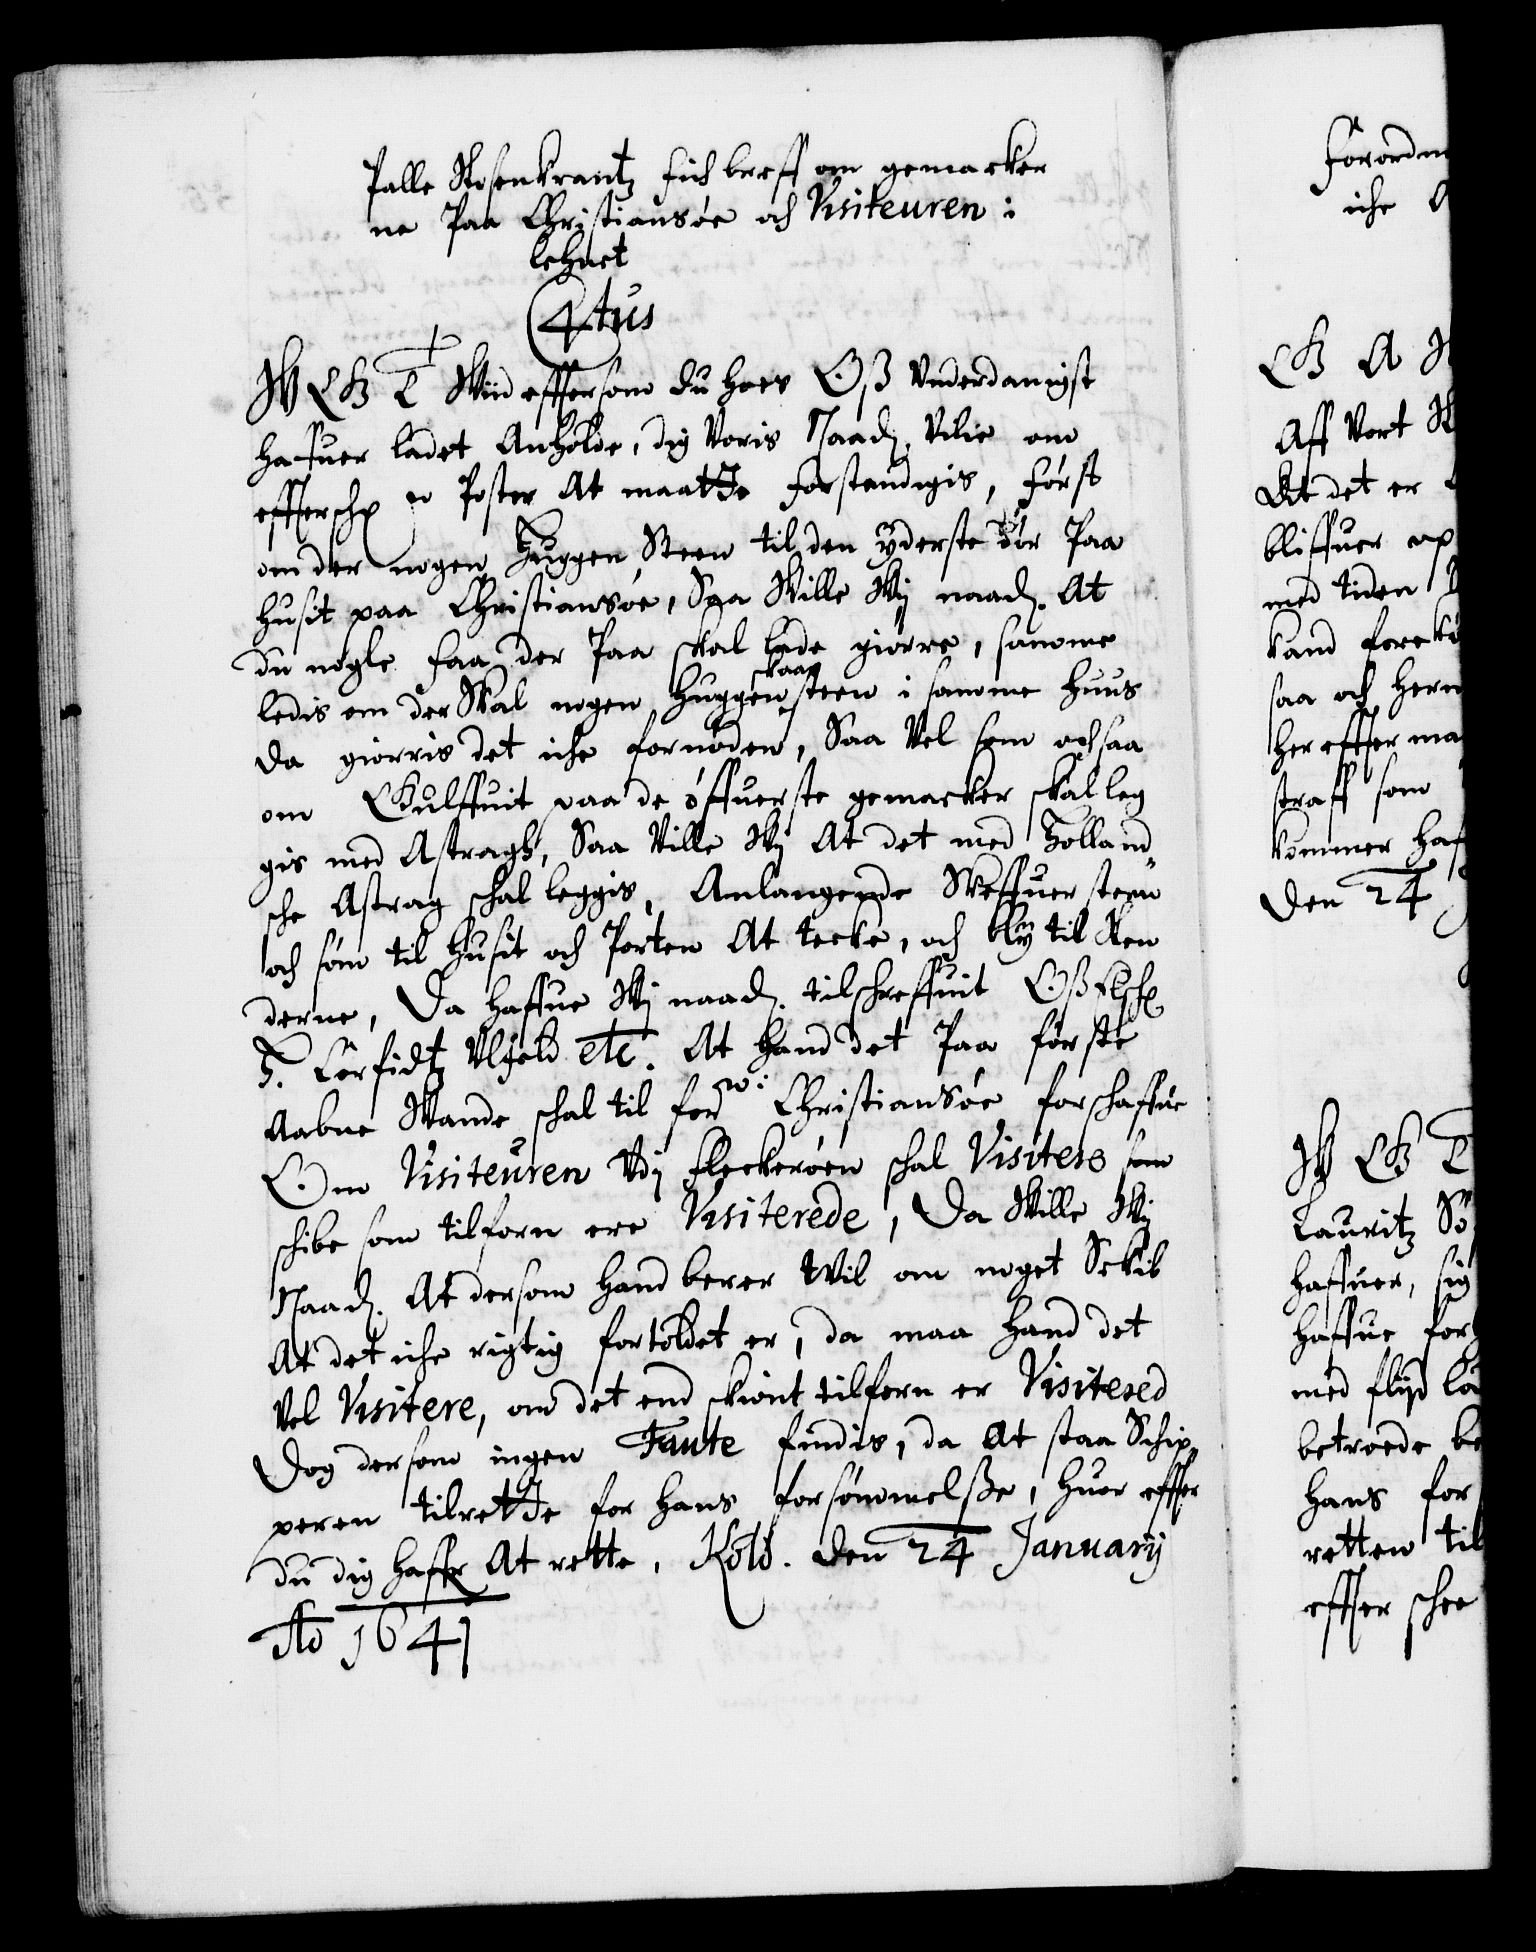 Palle Rosenkrantz fich breff om gemacker
ne Paa Christiansøe och Visiteuren i
lehnet
C 4tus
W G T Wiid effersom du hoes Oss Underdanigst
haffuer ladet Anholde, dig Voris Naad. Vilie om
Poster At maatte forstendigis, først
om der nogen Huggen Steen til den yderste dør Paa
husit paa Christiansøe, Saa Wille Wij naad. At
du nogle faa der Paa skal lade giørre, samme
ledis om der Skal nogen Huggen skaarsteen i samme Huus
da giørris det iche fornøden, Saa Vel som ochsaa
om Gulffuit paa de øffuerste gemacker skal leg
gis med Astragh, Saa Ville Wij At det med Holland
sche Astrag schal leggis, Anlangende Skeffuersteen
och søm til husit och Porten At tecke, och bly til Ren
derne, Da haffue Wij naad. tilschreffuit Oss Elsch
H. Corfidtz Ulfeld etc. At hand det Paa første
Aabne Wande schal til forne: Christiansøe forschaffue
Om Visiteuren Udj Fleckerøen schal Visitere som
schibe som tilforn ere Visiterede, Da Wille Wij
Naad. At dersom hand berer tvil om noget Sckib
At det iche rigtig fortoldet er, da maa hand det
Vel Visitere, om det end skiønt tilforn er Visitered
Dog dersom ingen Faute findis, da At staa Schip,,
peren tilrette for hans forsømmelsse, huor effter
du dig haffr At rette, Kold. den 24 Januarij
Ao 1641
Forordn
iche
G A
Aff Vort
At det er
bliffuer op
med tiden
kand forekom
saa och hern
her effter ma
straff som
kommer haf
Den 24
W G T
Lauritz Sø
haffuer, sig
haffue for
med flijd la
betroede be
hans for
retten til
effter schee